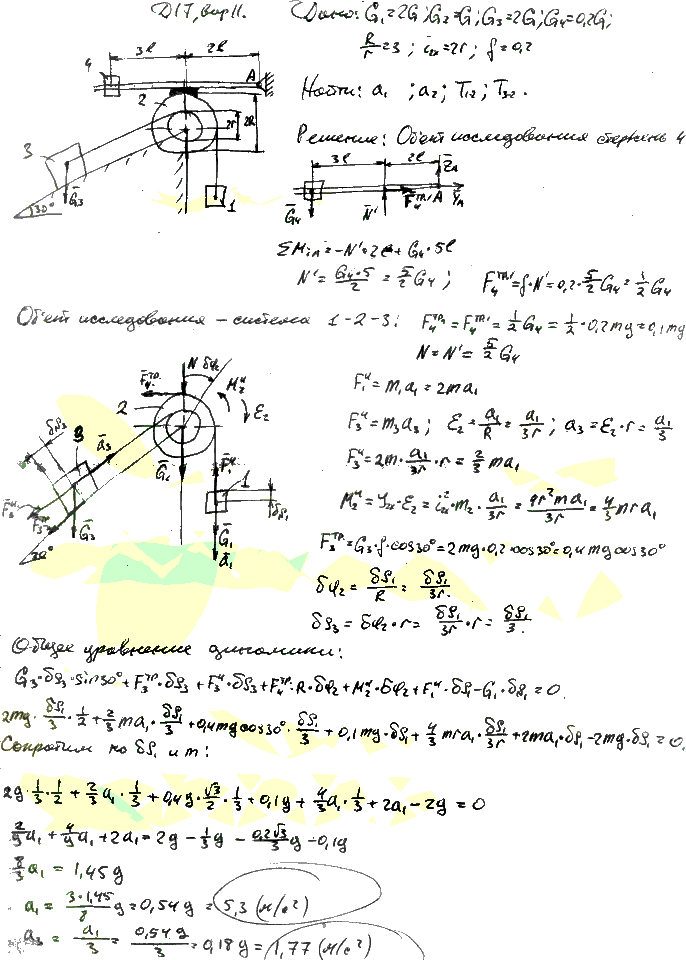 D17, вар 11.
Дано: G₁=2G; G₂=G; G₃=2G; G₄=0,2G;
R/r=3; i₂ₓ=2r; f=0,2
Найти: a₁; a₂; T₁₋₂; T₃₋₂.
Решение: Объект исследования стержень 4
3l 2l
4 A
2
2r 2R
3
Ḡ₃
30°
1
3l 2l
Z̄A
Ḡ₄ N̄' F̄₄ᵀᴾ' A ȲA
ΣMiA = -N'·2l + G₄·5l
N' = G₄·5/2 = 5/2 G₄; F₄ᵀᴾ' = f·N' = 0,2·5/2 G₄ = 1/2 G₄
Объект исследования – система 1-2-3: F₄ᵀᴾ = F₄ᵀᴾ' = 1/2 G₄ = 1/2·0,2mg = 0,1mg
N = N' = 5/2 G₄
F₁ᵘ = m₁a₁ = 2ma₁
F₃ᵘ = m₃a₃; ε₂ = a₁/R = a₁/3r; a₃ = ε₂·r = a₁/3
F₃ᵘ = 2m·a₁/3r·r = 2/3 ma₁
M₂ᵘ = J₂ₓ·ε₂ = i₂ₓ²·m₂·a₁/3r = 4r²ma₁/3r = 4/3 mra₁
F₃ᵀᴾ = G₃·f·cos30° = 2mg·0,2·cos30° = 0,4mgcos30°
δφ₂ = δS₁/R = δS₁/3r.
δS₃ = δφ₂·r = δS₁/3r·r = δS₁/3.
F̄₄ᵀᴾ N δφ₂ M₂ᵘ
2 ε₂
δS₃
3 ā₃
Ḡ₂ F̄₁ᵘ
1
δS₁
F̄₃ᵘ
F̄₃ᵀᴾ Ḡ₃
30°
Ḡ₁
ā₁
Общее уравнение динамики:
G₃·δS₃·sin30° + F₃ᵀᴾ·δS₃ + F₃ᵘ·δS₃ + F₄ᵀᴾ·R·δφ₂ + M₂ᵘ·δφ₂ + F₁ᵘ·δS₁ - G₁·δS₁ = 0.
2mg·δS₁/3·1/2 + 2/3 ma₁·δS₁/3 + 0,4mgcos30°·δS₁/3 + 0,1mg·δS₁ + 4/3 mra₁·δS₁/3r + 2ma₁·δS₁ - 2mg·δS₁ = 0.
Сократим на δS₁ и m:
2g·1/3·1/2 + 2/3 a₁·1/3 + 0,4g·√3/2·1/3 + 0,1g + 4/3 a₁·1/3 + 2a₁ - 2g = 0
2/9 a₁ + 4/9 a₁ + 2a₁ = 2g - 1/3 g - 0,2√3/3 g - 0,1g
8/3 a₁ = 1,45g
a₁ = 3·1,45/8 g = 0,54g = 5,3 (м/с²)
a₃ = a₁/3 = 0,54g/3 = 0,18g = 1,77 (м/с²)